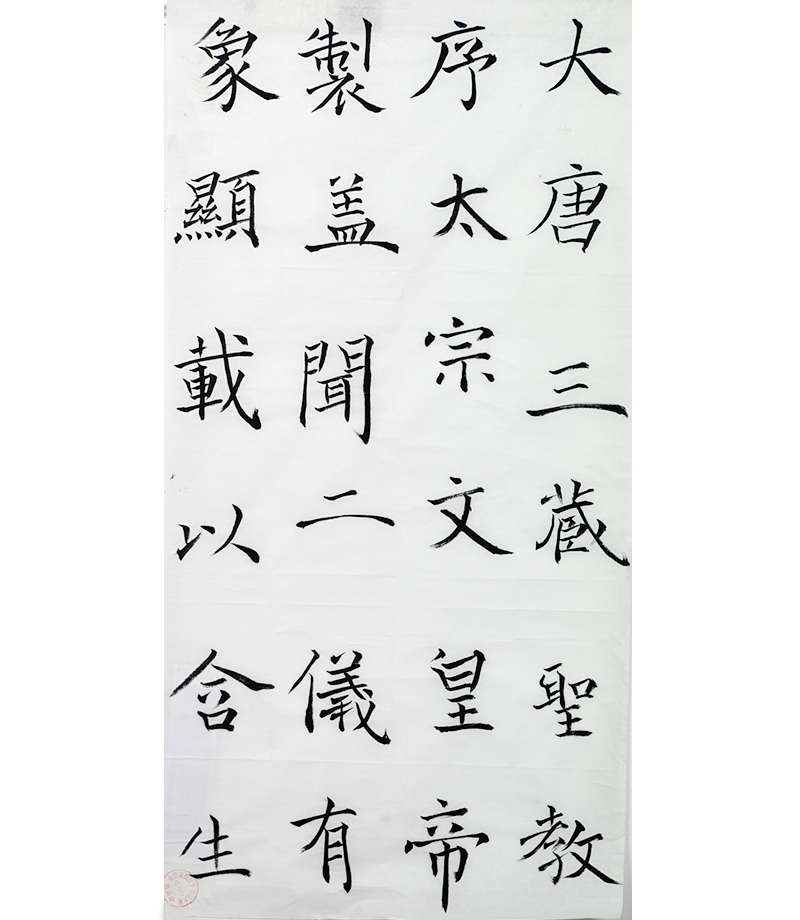 大唐三藏聖教
序太宗文皇帝
製盖聞二儀有
象顯載以含生